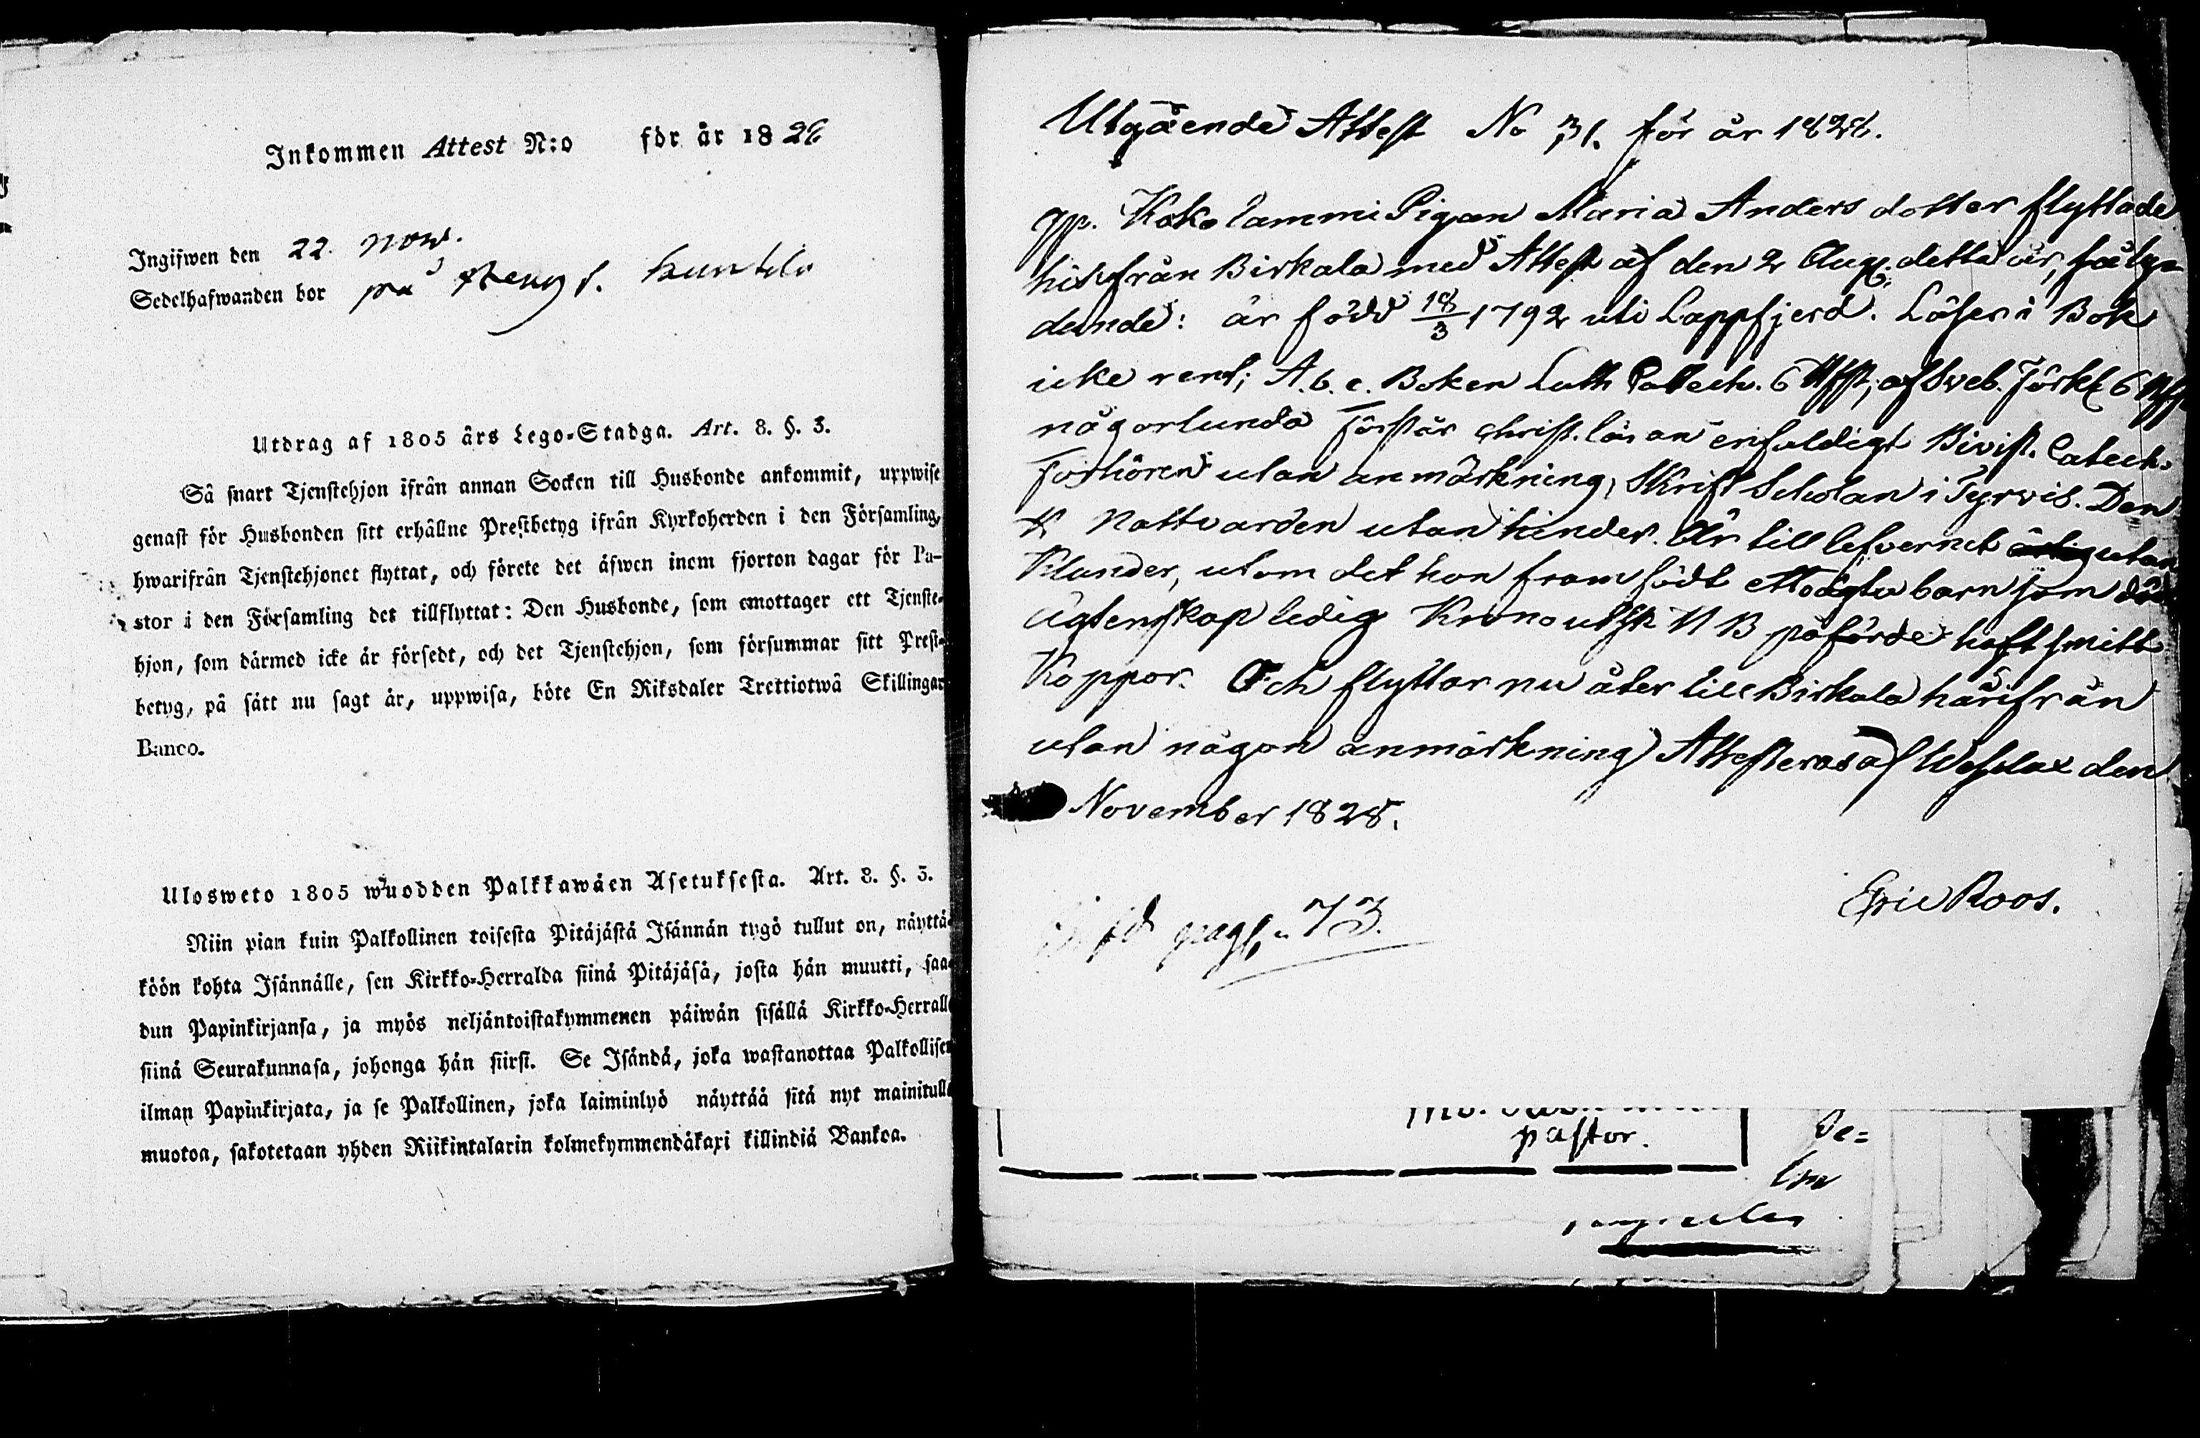 Inkommen Attest N:o för år 1828
Ingifwen den 22 Now.
Sedelhafwanden bor på
Utdrag af 1805 års Lego-Stadga. Art. 8. §. 3.
Så snart Tjenstehjon ifrån annan Socken till Husbonde ankommit, uppwise
genast för Husbonden sitt erhållne Prestbetyg ifrån Kyrkoherden i den Församling,
hwarifrån Tjenstehjonet flyttat, och förete det äfwen inom fjorton dagar för Pa-
stor i den Församling det tillflyttat: Den Husbonde, som emottager ett Tjenste-
hjon, som därmed icke är försedt, och det Tjenstehjon, som försummar sitt Prest-
betyg, på sätt nu sagt är, uppwisa, böte En Riksdaler Trettiotwå Skillingar
Banco.
Ulosweto 1805 wuodden Palkkawäen Asetuksesta. Art. 8. §. 3.
Niin pian kuin Palkollinen toisesta Pitäjästä Isännän tygö tullut on, näyttä-
köön kohta Isännälle, sen Kirkko-Herralda siinä Pitäjäsä, josta hän muutti, saa-
dun Papinkirjansa, ja myös neljäntoistakymmenen päiwän sisällä Kirkko-Herralle
siinä Seurakunnasa, johonga hän siirsi. Se Isändä, joka wastanottaa Palkollisen
ilman Papinkirjata, ja se Palkollinen, joka laiminlyö näyttää sitä nyt mainitulla
muotoa, sakotetaan yhden Riikintalarin kolmekymmendäkaxi killindiä Bankoa.
Utgående Attest No 31. för år 1828.
Kokolammi Pigan Maria Anders dotter flyttade
hit från Birkala med Attest af den 2 Aug. detta år, følgn
dande: är född 18/3 1792 uti Lappfjerd. Läser i Bok
icke rent; A.b.c. Boken Luth Catech. 6 af Sveb. Förkl 6
någorlunda Förstår Christ. läran enfaldigt Bivist. Catech.
Förhören utan anmärkning, Skrift Scholan i Tyrvis. Den
H Nattvarden utan hinder. Är till lefvernet utan
Klander, utom det hon framfödt barn som
Ägtenskap ledig Krono utsk påförde haft smitt
Koppor. Och flyttar nu åter till Birkala härifrån
utan någon anmärkning Attesteras af den
November 1828.
Eric Roos.
pag. 73.
pastor.